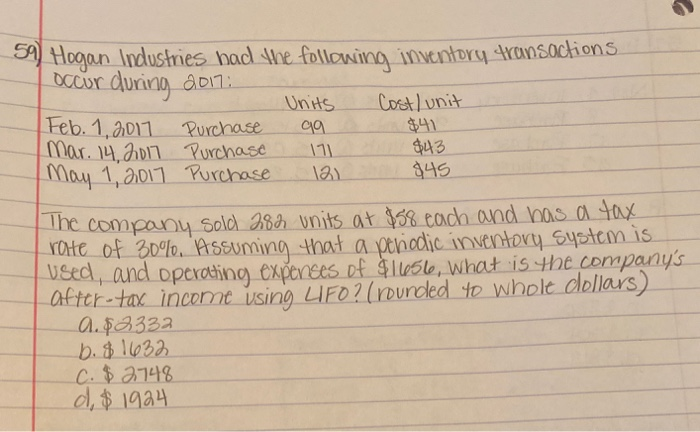 59) Hogan Industries had the following inventory transactions
occur during 2017:
Units Cost/unit
Feb. 1, 2017 Purchase 99 $41
Mar. 14, 2017 Purchase 171 $43
May 1, 2017 Purchase 121 $45
The company sold 282 units at $58 each and has a tax
rate of 30%. Assuming that a periodic inventory system is
used, and operating expenses of $1656, what is the company's
after-tax income using LIFO? (rounded to whole dollars)
a. $2332
b. $1632
c. $2748
d. $1924